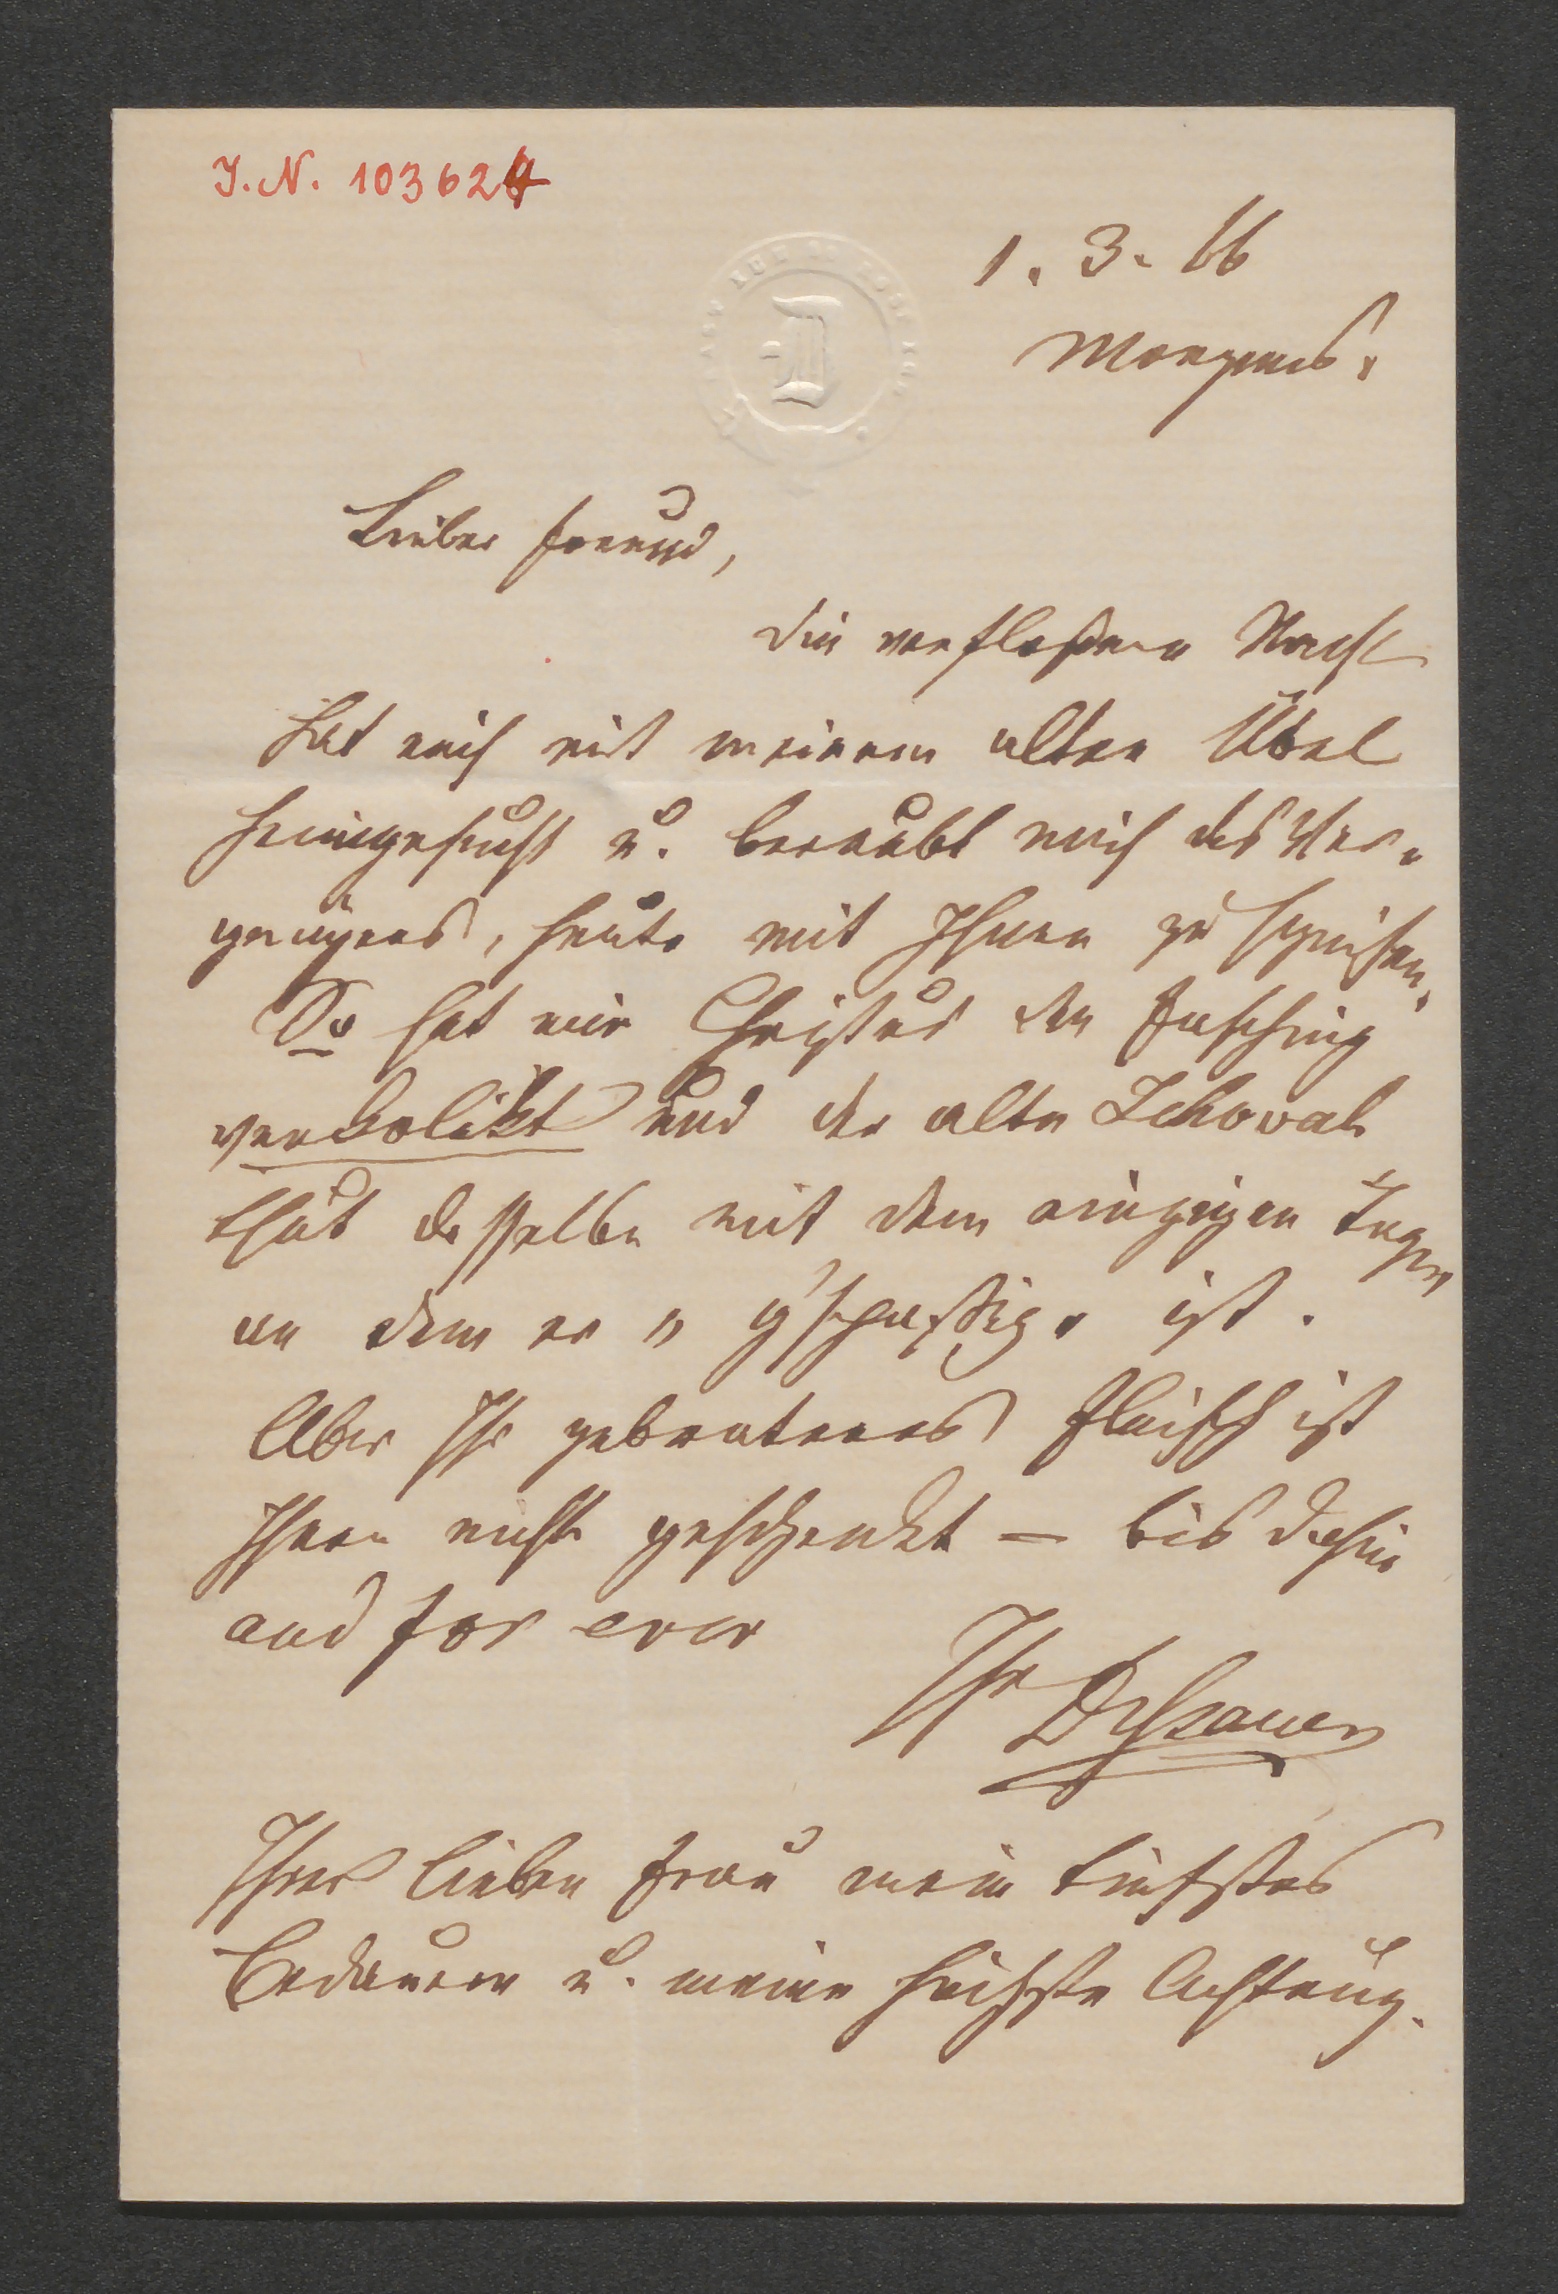 J.N. 103624
1. 3. 66
Morgens.
D
Lieber Freund,
die verfloßene Nacht
hat mich mit meinem alten Übel
heimgesucht u. beraubt mich des Ver-
gnügens, heute mit Ihnen zu speisen.
So hat mir Christus den Fasching
verkolikt und der alte Jehovah
thut desselbe mit dem einzigen Tage,
an dem er "g'spassig" ist.
Aber Ihr gebratenes Fleisch ist
Ihnen nicht geschenkt – bis dahin
and for ever
Ihr Dessauer
Ihrer lieben Frau mein tiefstes
Bedauern u. meine höchste Achtung.